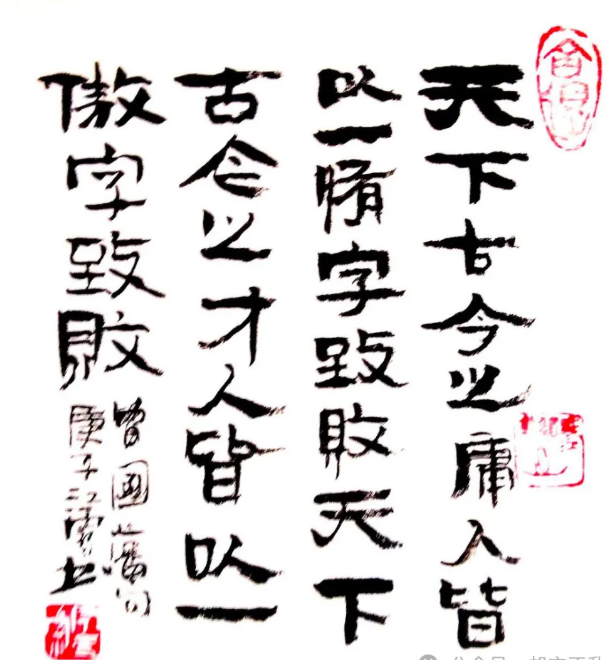 天下古今之庸人皆
以一惰字致败天下
古今之才人皆以一
傲字致败
曾国藩句
庚子江雪书